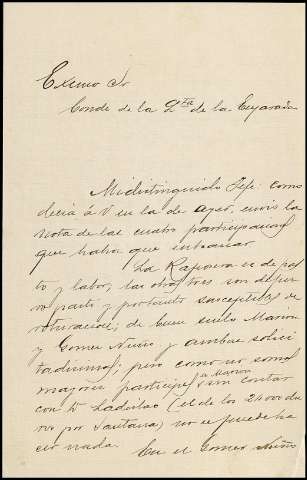 Excmo Sr
Conde de la Qta de la Enjarada
Mi distinguido Jefe: como
decia á V en la de ayer, envio la
nota de las cuatro participaciones
que habia que
La Raposera es de pas
to y labor, las otras tres son de puro
pasto y por tanto susceptibles de
roturacion; de buen suelo Marron
y Gomez Nuño y ambas solici
tadisimas; pero como no somos
mayores participes á Marron sin contar
con D. Ladislao (el de los 24000 du
ros por Santana) no se puede ha
cer nada.
En el Gomez Nuño